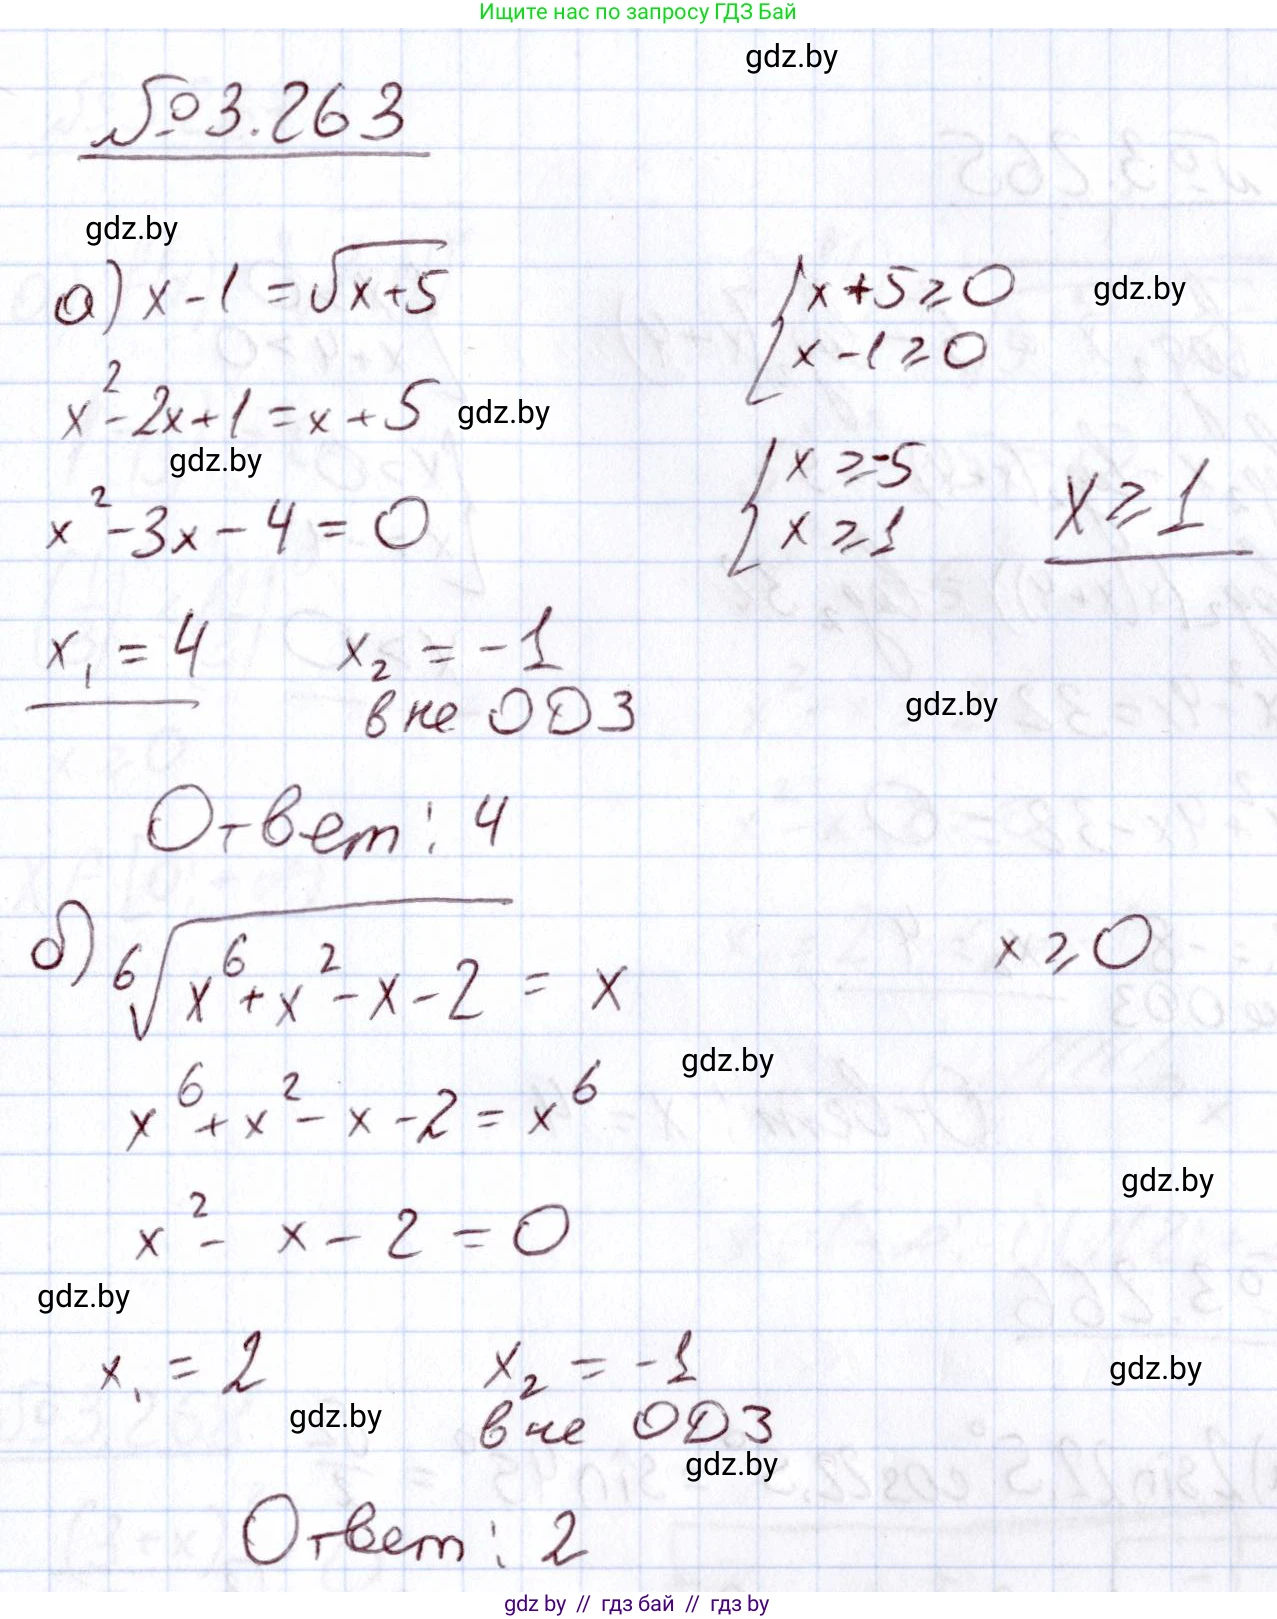 Ищите нас по запросу ГДЗ Бай
gdz.by
№3.263
gdz.by
а) x - 1 = √(x+5)
{x + 5 ≥ 0
x - 1 ≥ 0
gdz.by
x² - 2x + 1 = x + 5
gdz.by
gdz.by
{x ≥ -5
x ≥ 1
x ≥ 1
x² - 3x - 4 = 0
x₁ = 4
x₂ = -1
вне ОДЗ
gdz.by
Ответ: 4
б) ⁶√(x⁶ + x² - x - 2) = x
x ≥ 0
gdz.by
x⁶ + x² - x - 2 = x⁶
gdz.by
x² - x - 2 = 0
gdz.by
x₁ = 2
x₂ = -1
gdz.by
gdz.by
вне ОДЗ
gdz.by
Ответ: 2
gdz.by // гдз бай // гдз by